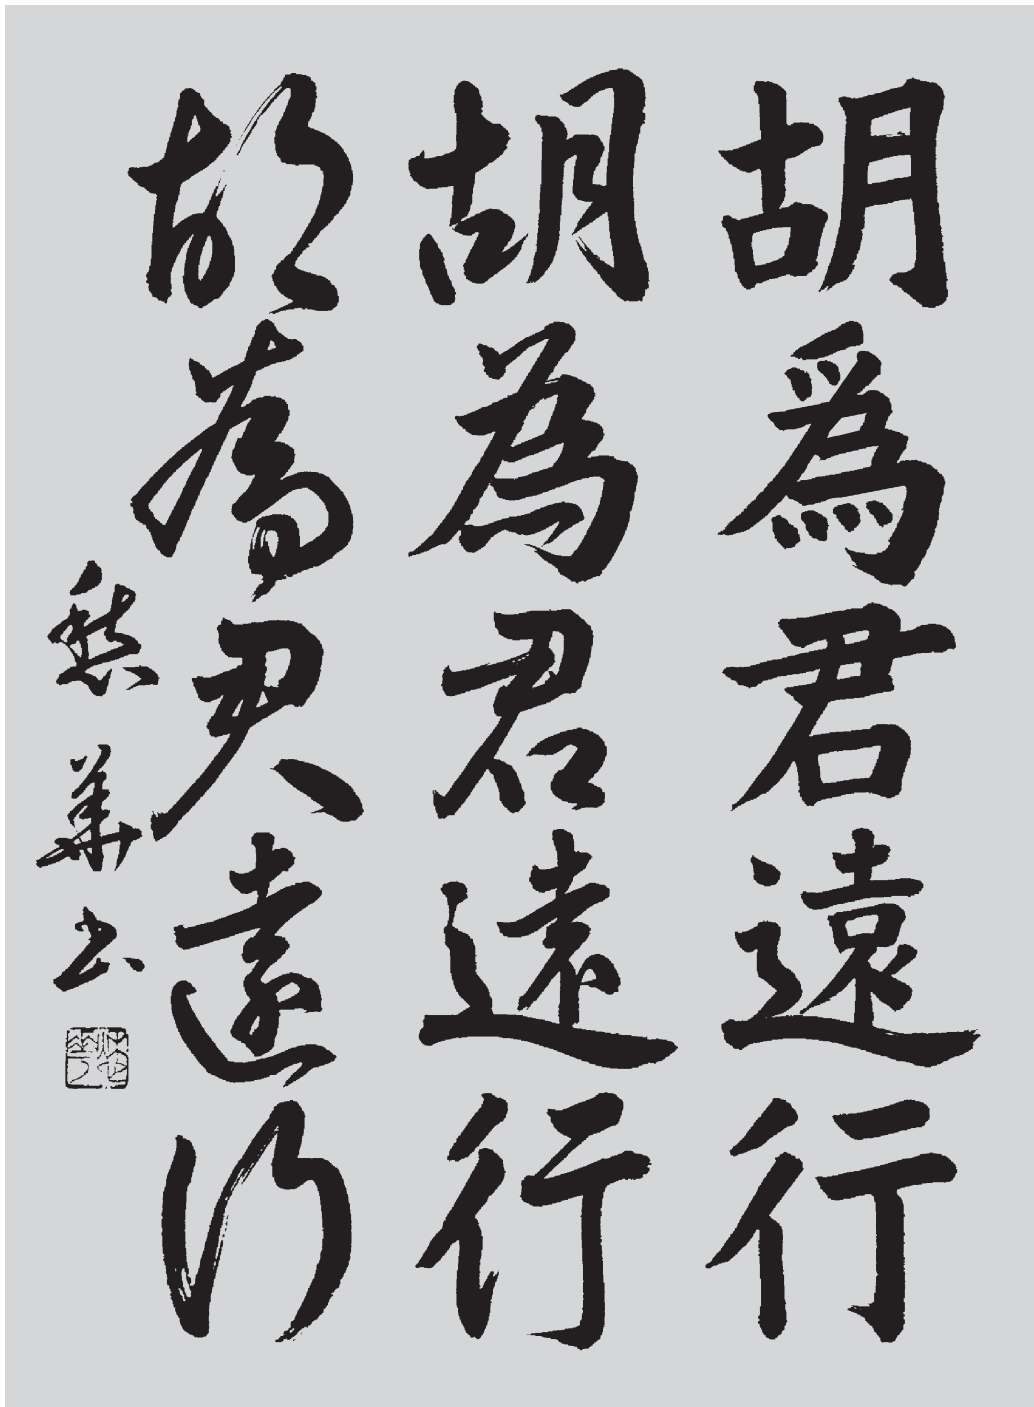 胡爲君遠行
胡為君遠行
胡為君遠行
華书